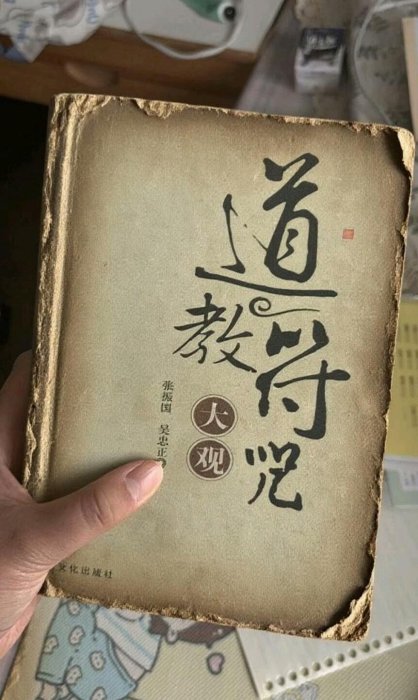 道教符咒
大观
张振国 吴忠正
文化出版社